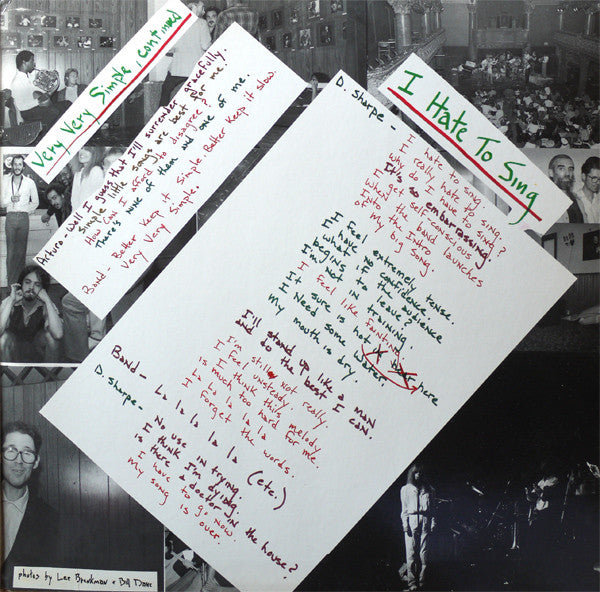 Very Very Simple, continued
Arturo - Well I guess that I'll surrender gracefully.
Simple little songs are best for me.
How can I afford to disagree?
There's nine of them and one of me.
Band - Better keep it simple. Better keep it slow.
Very Very Simple.
I Hate To Sing
D. Sharpe - I hate to sing.
I really hate to sing.
Why do I have to sing?
It's so embarrassing
I get self conscious
When the band launches
Into the intro
Of my big song.
I feel extremely tense.
I have no confidence.
What if the audience
Begins to leave?
I'm not in training.
I feel like fainting
It sure is hot in here
I need some water
My mouth is dry.
I'll stand up like a man
and do the best I can.
I'm still not really
I feel unsteady.
I think this melody
is much too hard for me.
La la la la la
I forget the words.
Band - La la la la la la (etc.)
D. Sharpe - No use in trying.
I think I'm dying.
Is there a doctor in the house?
I have to go now.
My song is over.
photos by Lee Brenkman + Bill Dane